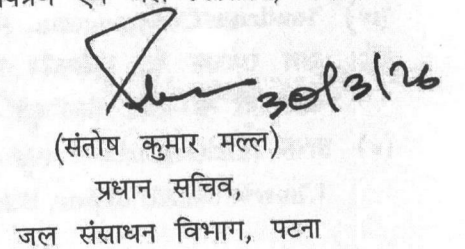 30/3/26
(संतोष कुमार मल्ल)
प्रधान सचिव,
जल संसाधन विभाग, पटना